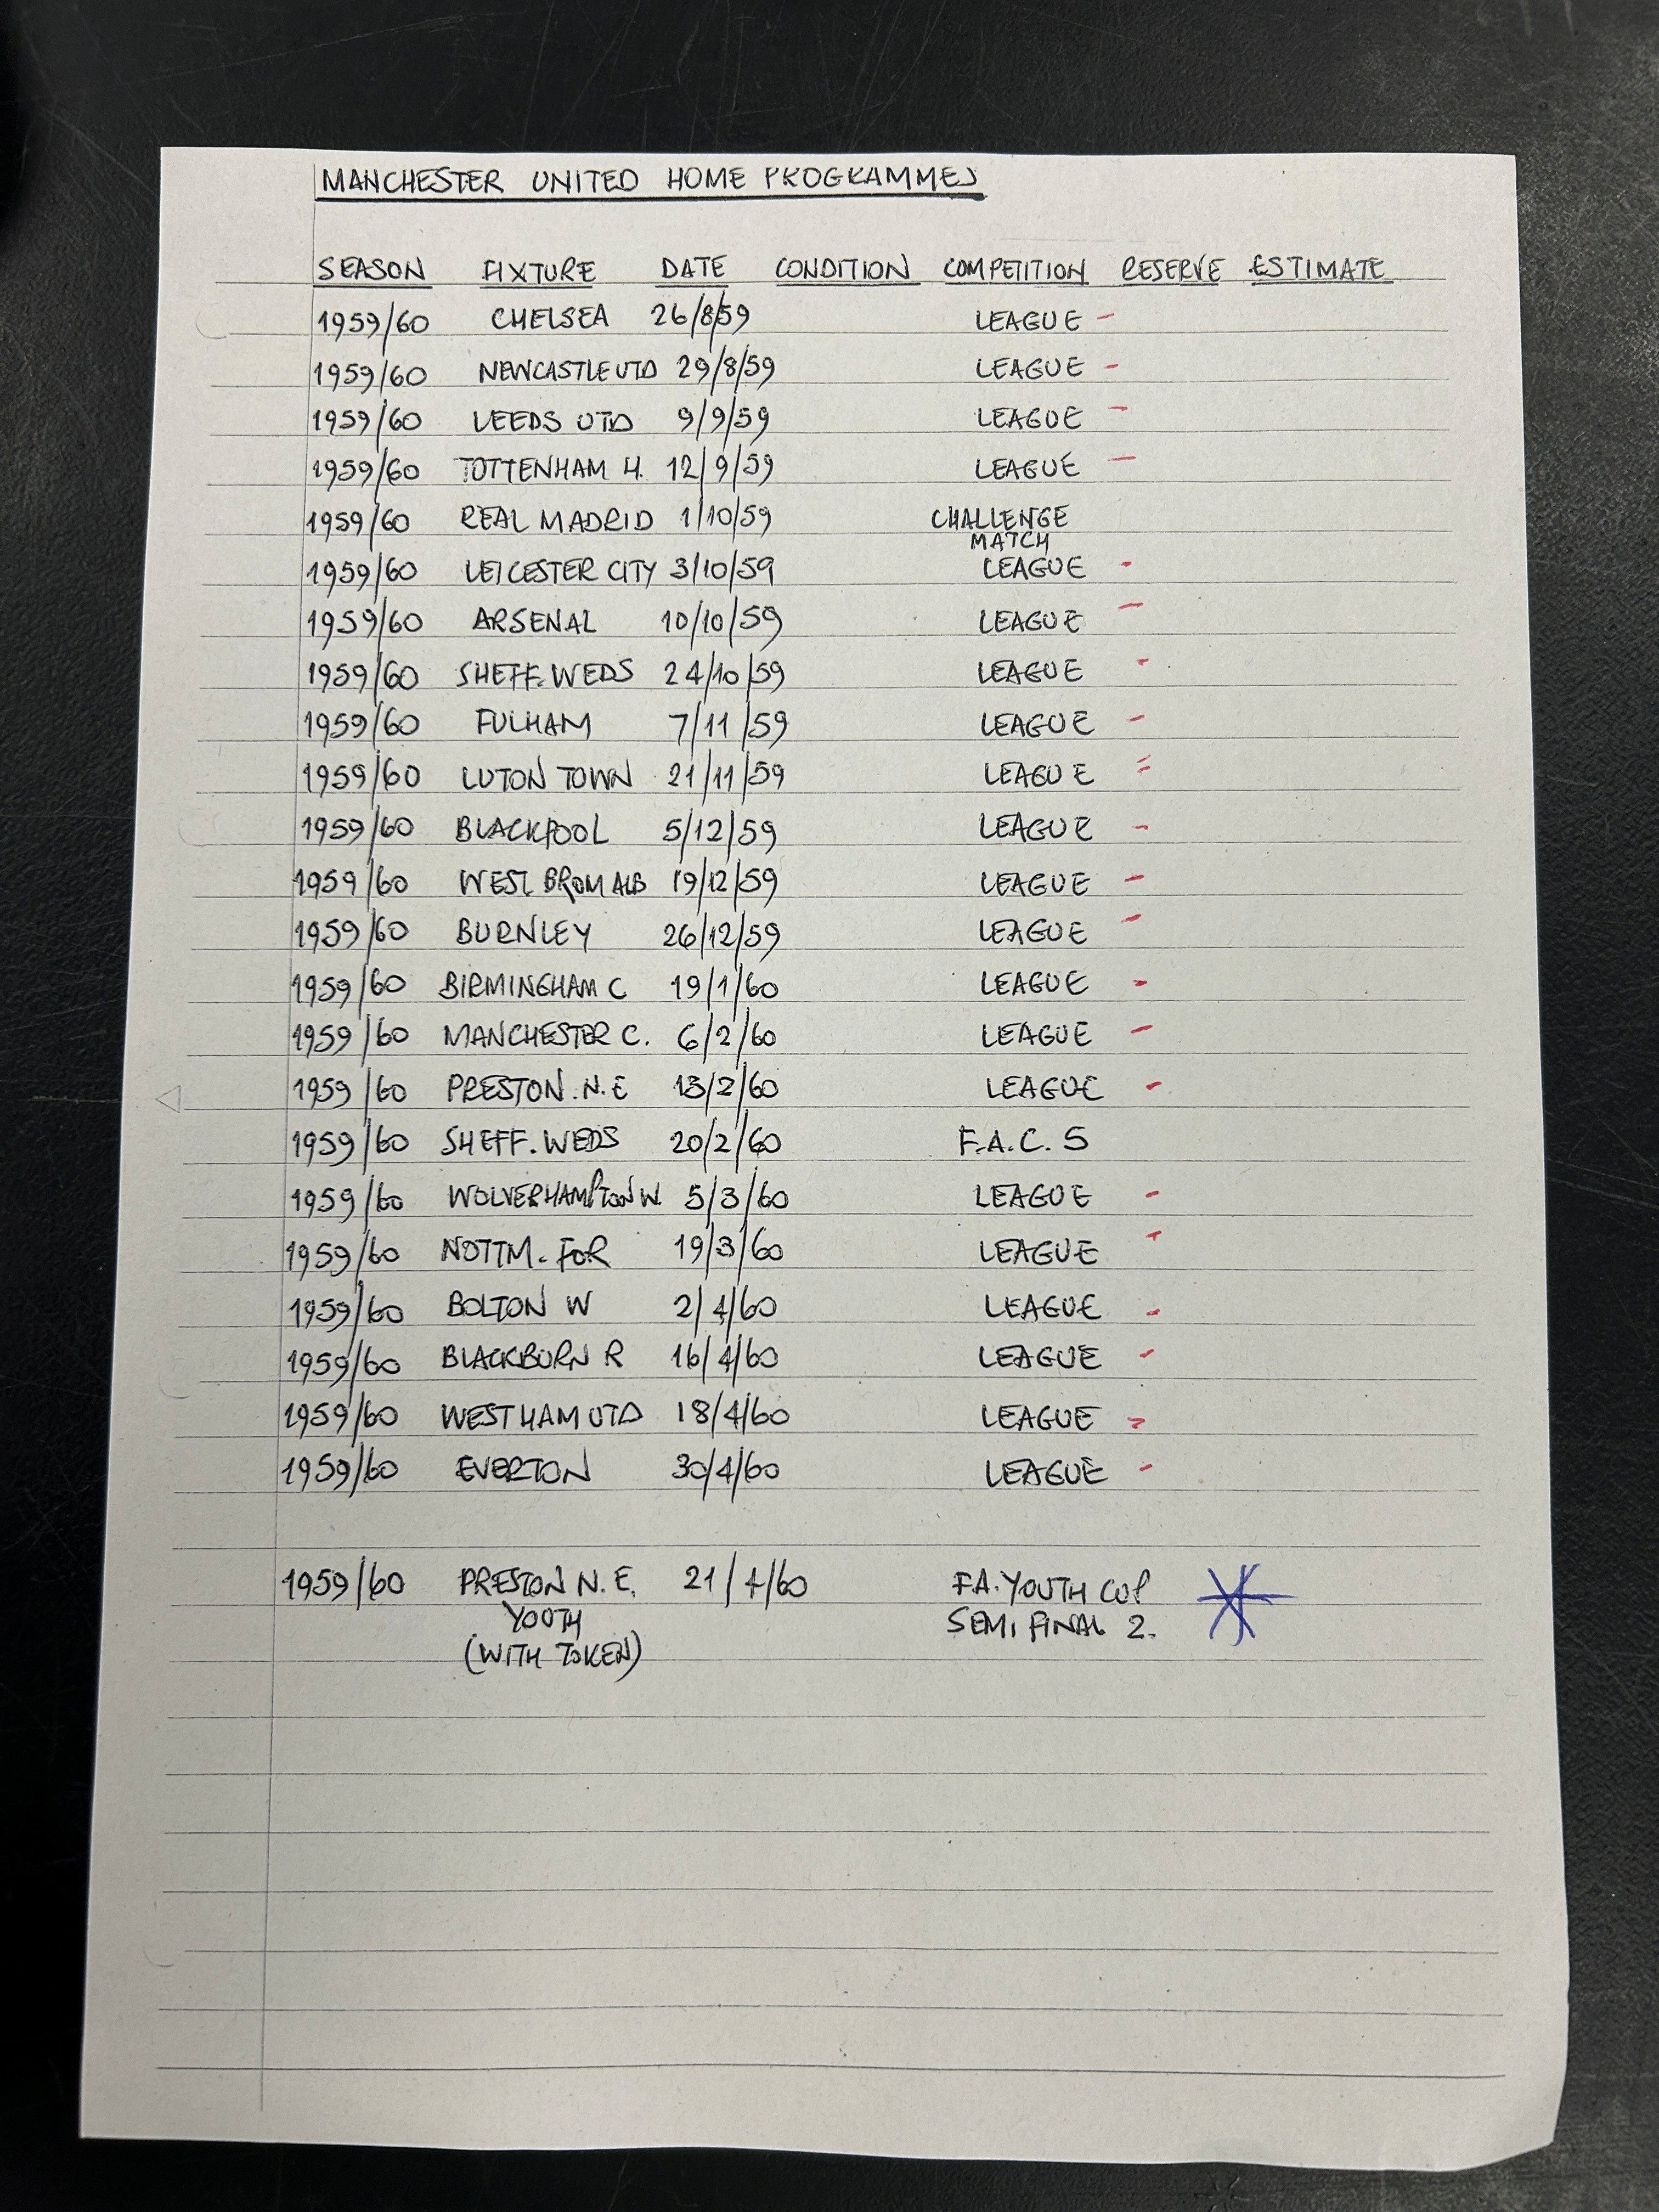 MANCHESTER UNITED HOME PROGRAMMES
SEASON FIXTURE DATE CONDITION COMPETITION RESERVE ESTIMATE
1959/60 CHELSEA 26/8/59 LEAGUE -
1959/60 NEWCASTLE UTD 29/8/59 LEAGUE -
1959/60 LEEDS UTD 9/9/59 LEAGUE -
1959/60 TOTTENHAM H. 12/9/59 LEAGUE -
1959/60 REAL MADRID 1/10/59 CHALLENGE
MATCH
1959/60 LEICESTER CITY 3/10/59 LEAGUE -
1959/60 ARSENAL 10/10/59 LEAGUE -
1959/60 SHEFF. WEDS 24/10/59 LEAGUE -
1959/60 FULHAM 7/11/59 LEAGUE -
1959/60 LUTON TOWN 21/11/59 LEAGUE -
1959/60 BLACKPOOL 5/12/59 LEAGUE -
1959/60 WEST BROM ALB 19/12/59 LEAGUE -
1959/60 BURNLEY 26/12/59 LEAGUE -
1959/60 BIRMINGHAM C 19/1/60 LEAGUE -
1959/60 MANCHESTER C. 6/2/60 LEAGUE -
1959/60 PRESTON. N. E 13/2/60 LEAGUE -
1959/60 SHEFF. WEDS 20/2/60 F.A.C. 5
1959/60 WOLVERHAMPTON W. 5/3/60 LEAGUE -
1959/60 NOTTM. FOR 19/3/60 LEAGUE -
1959/60 BOLTON W 2/4/60 LEAGUE -
1959/60 BLACKBURN R 16/4/60 LEAGUE -
1959/60 WEST HAM UTD 18/4/60 LEAGUE -
1959/60 EVERTON 30/4/60 LEAGUE -
1959/60 PRESTON N. E. 21/4/60 F.A. YOUTH CUP
YOUTH SEMI FINAL 2.
(WITH TOKEN)